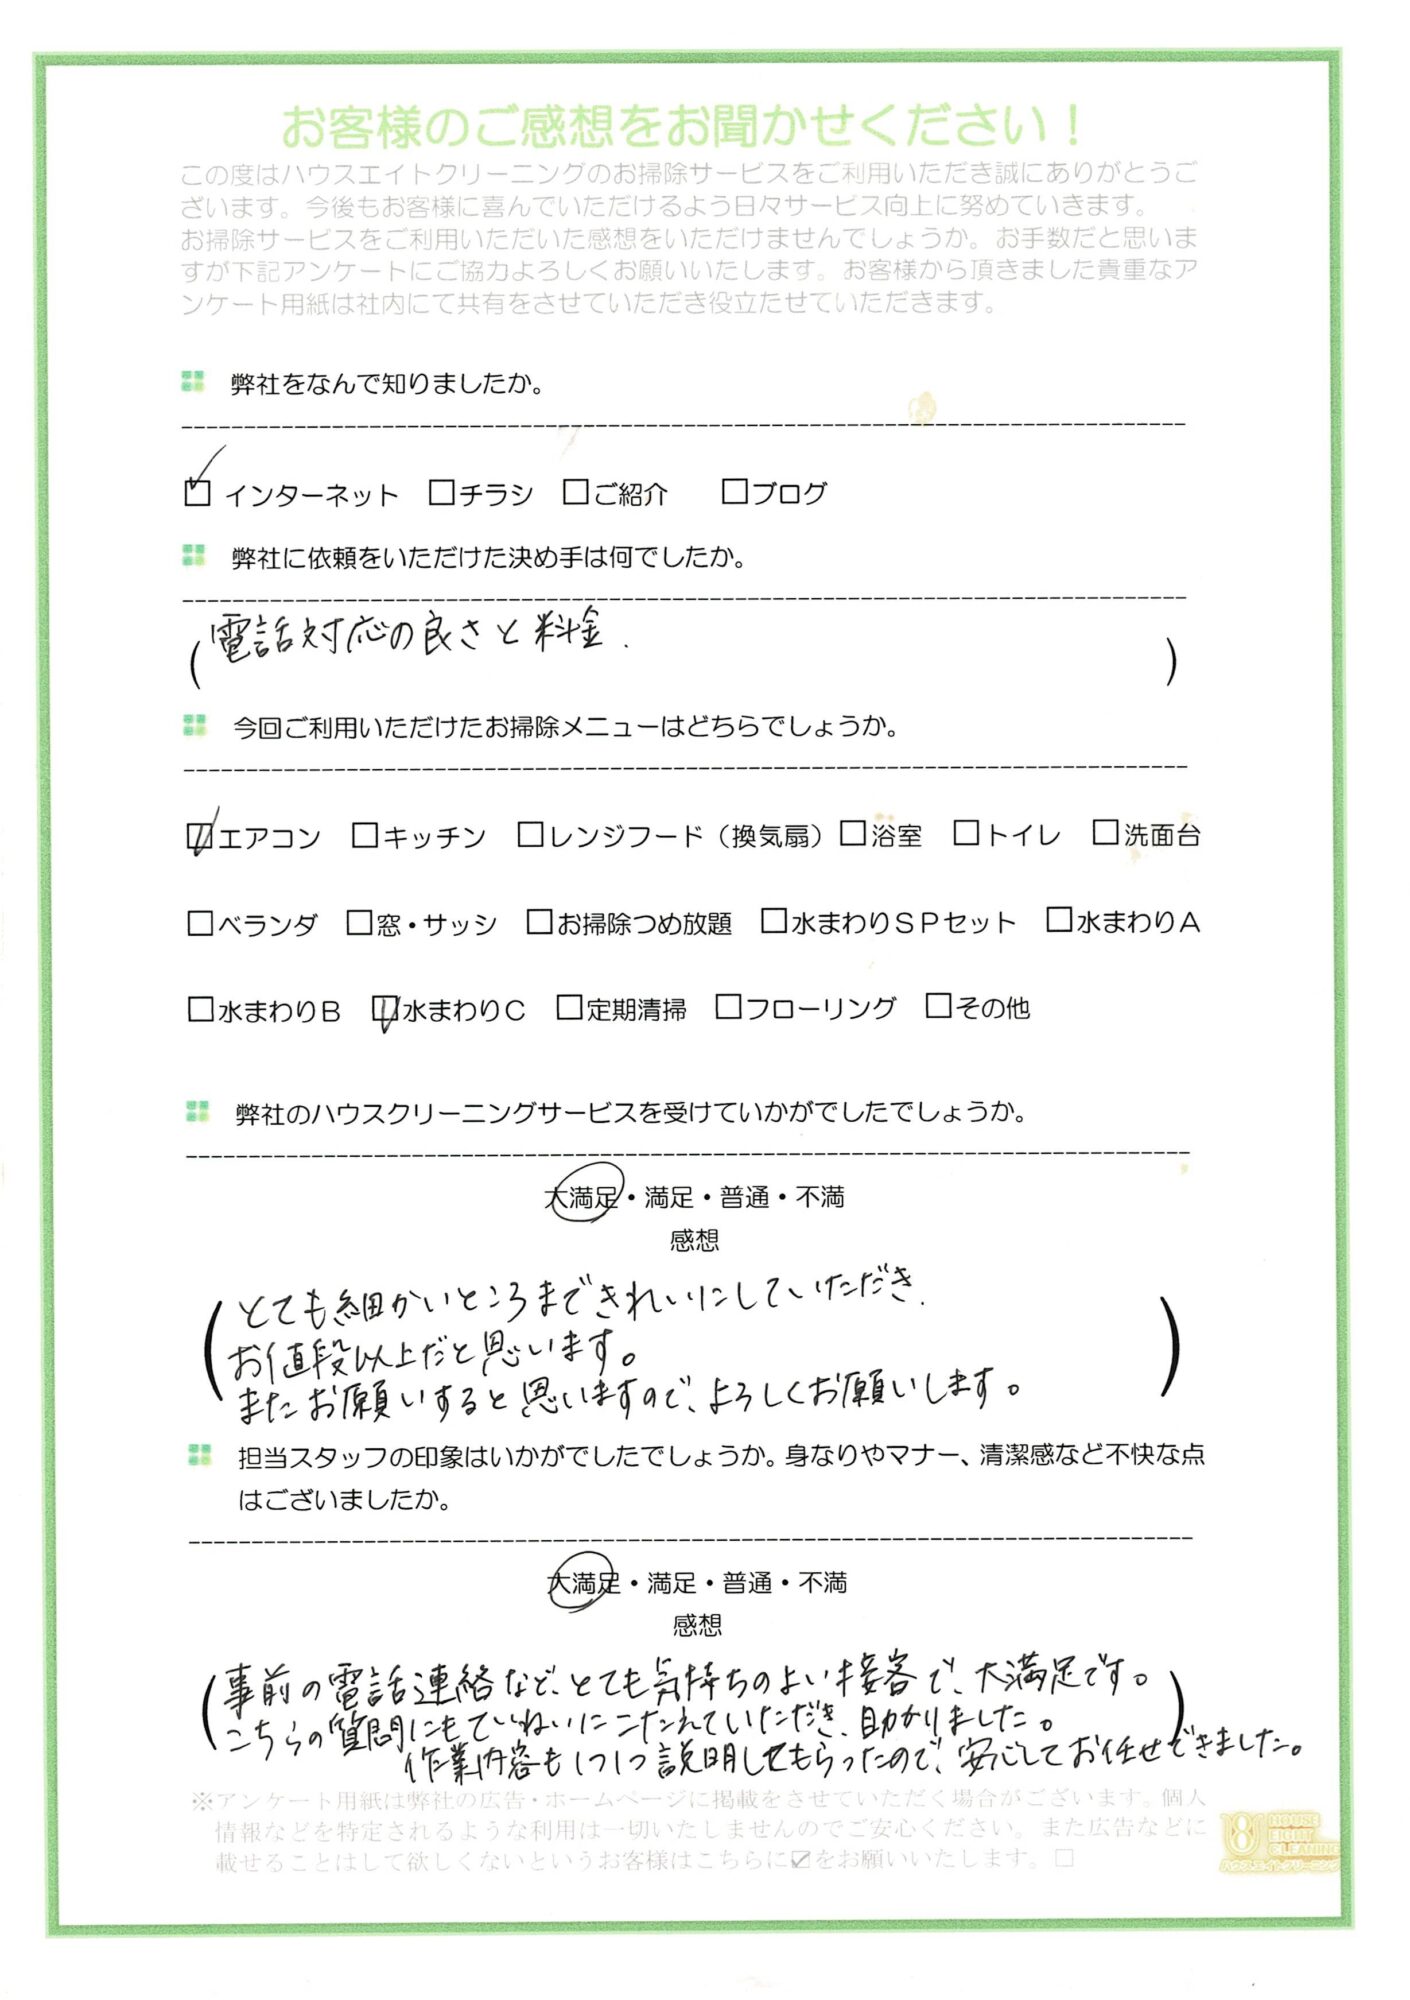 お客様のご感想をお聞かせください！
この度はハウスエイトクリーニングのお掃除サービスをご利用いただき誠にありがとうご
ざいます。今後もお客様に喜んでいただけるよう日々サービス向上に努めていきます。
お掃除サービスをご利用いただいた感想をいただけませんでしょうか。お手数だと思いま
すが下記アンケートにご協力よろしくお願いいたします。お客様から頂きました貴重なア
ンケート用紙は社内にて共有をさせていただき役立たせていただきます。
弊社をなんで知りましたか。
☑インターネット □チラシ □ご紹介 □ブログ
弊社に依頼をいただけた決め手は何でしたか。
（電話対応の良さと料金.）
今回ご利用いただけたお掃除メニューはどちらでしょうか。
☑エアコン □キッチン □レンジフード（換気扇）□浴室 □トイレ □洗面台
□ベランダ □窓・サッシ □お掃除つめ放題 □水まわりＳＰセット □水まわりＡ
□水まわりＢ ☑水まわりＣ □定期清掃 □フローリング □その他
弊社のハウスクリーニングサービスを受けていかがでしたでしょうか。
大満足・満足・普通・不満
感想
（とても細かいところまできれいにしていただき、
お値段以上だと思います。
またお願いすると思いますので、よろしくお願いします。）
担当スタッフの印象はいかがでしたでしょうか。身なりやマナー、清潔感など不快な点
はございましたか。
大満足・満足・普通・不満
感想
（事前の電話連絡など、とても気持ちのよい接客で、大満足です。
こちらの質問にもていねいにこたえていただき、助かりました。）
作業内容も1つ1つ説明してもらったので、安心してお任せできました。
※アンケート用紙は弊社の広告・ホームページに掲載をさせていただく場合がございます。個人
情報などを特定されるような利用は一切いたしませんのでご安心ください。また広告などに
載せることはして欲しくないというお客様はこちらに☑をお願いいたします。□
HOUSE
EIGHT
CLEANING
ハウスエイトクリーニング